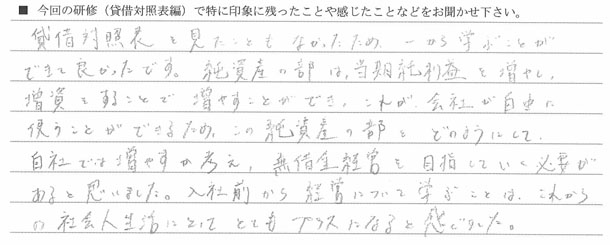 ■ 今回の研修（貸借対照表編）で特に印象に残ったことや感じたことなどをお聞かせ下さい。
貸借対照表を見たこともなかったため、一から学ぶことが
できて良かったです。純資産の部は、当期純利益を増やし、
増資をすることで増やすことができ、これが、会社が自由に
使うことができるため、この純資産の部をどのようにして、
自社では増やすか考え、無借金経営を目指していく必要が
あると思いました。入社前から経営について学ぶことは、これから
の社会人生活にとってとてもプラスになると感じました。